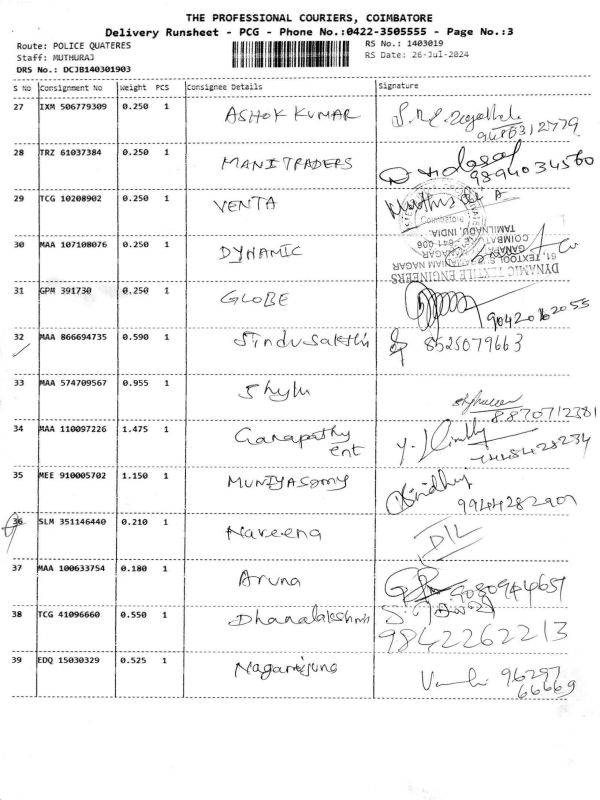 THE PROFESSIONAL COURIERS, COIMBATORE
Delivery Runsheet - PCG - Phone No.:0422-3505555 - Page No.:3
Route: POLICE QUATERES
RS No.: 1403019
Staff: MUTHURAJ
RS Date: 26-Jul-2024
DRS No.: DCJB140301903
S No Consignment No Weight PCS Consignee Details Signature
27 IXM 506779309 0.250 1 ASHOK KUMAR
28 TRZ 61037384 0.250 1 MANI TRADERS 9894034560
29 TCG 10208902 0.250 1 VENTA
Coimbatore
30 MAA 107108076 0.250 1 DYNAMIC
DYNAMIC TEXTILE ENGINEERS
TAMILNADU, INDIA.
31 GPM 391730 0.250 1 GLOBE 9042082055
32 MAA 866694735 0.590 1 Sindusakthi 8525079663
33 MAA 574709567 0.955 1 Shylu 8870712381
34 MAA 110097226 1.475 1 Ganapathy
ent
35 MEE 910005702 1.150 1 MUNIYASAMY 9944282909
36 SLM 351146440 0.210 1 Naveena D/L
37 MAA 100633754 0.180 1 Aruna
38 TCG 41096660 0.550 1 Dhanalakshmi
9842262213
39 EDQ 15030329 0.525 1 Nagarrjuna 96297
66669